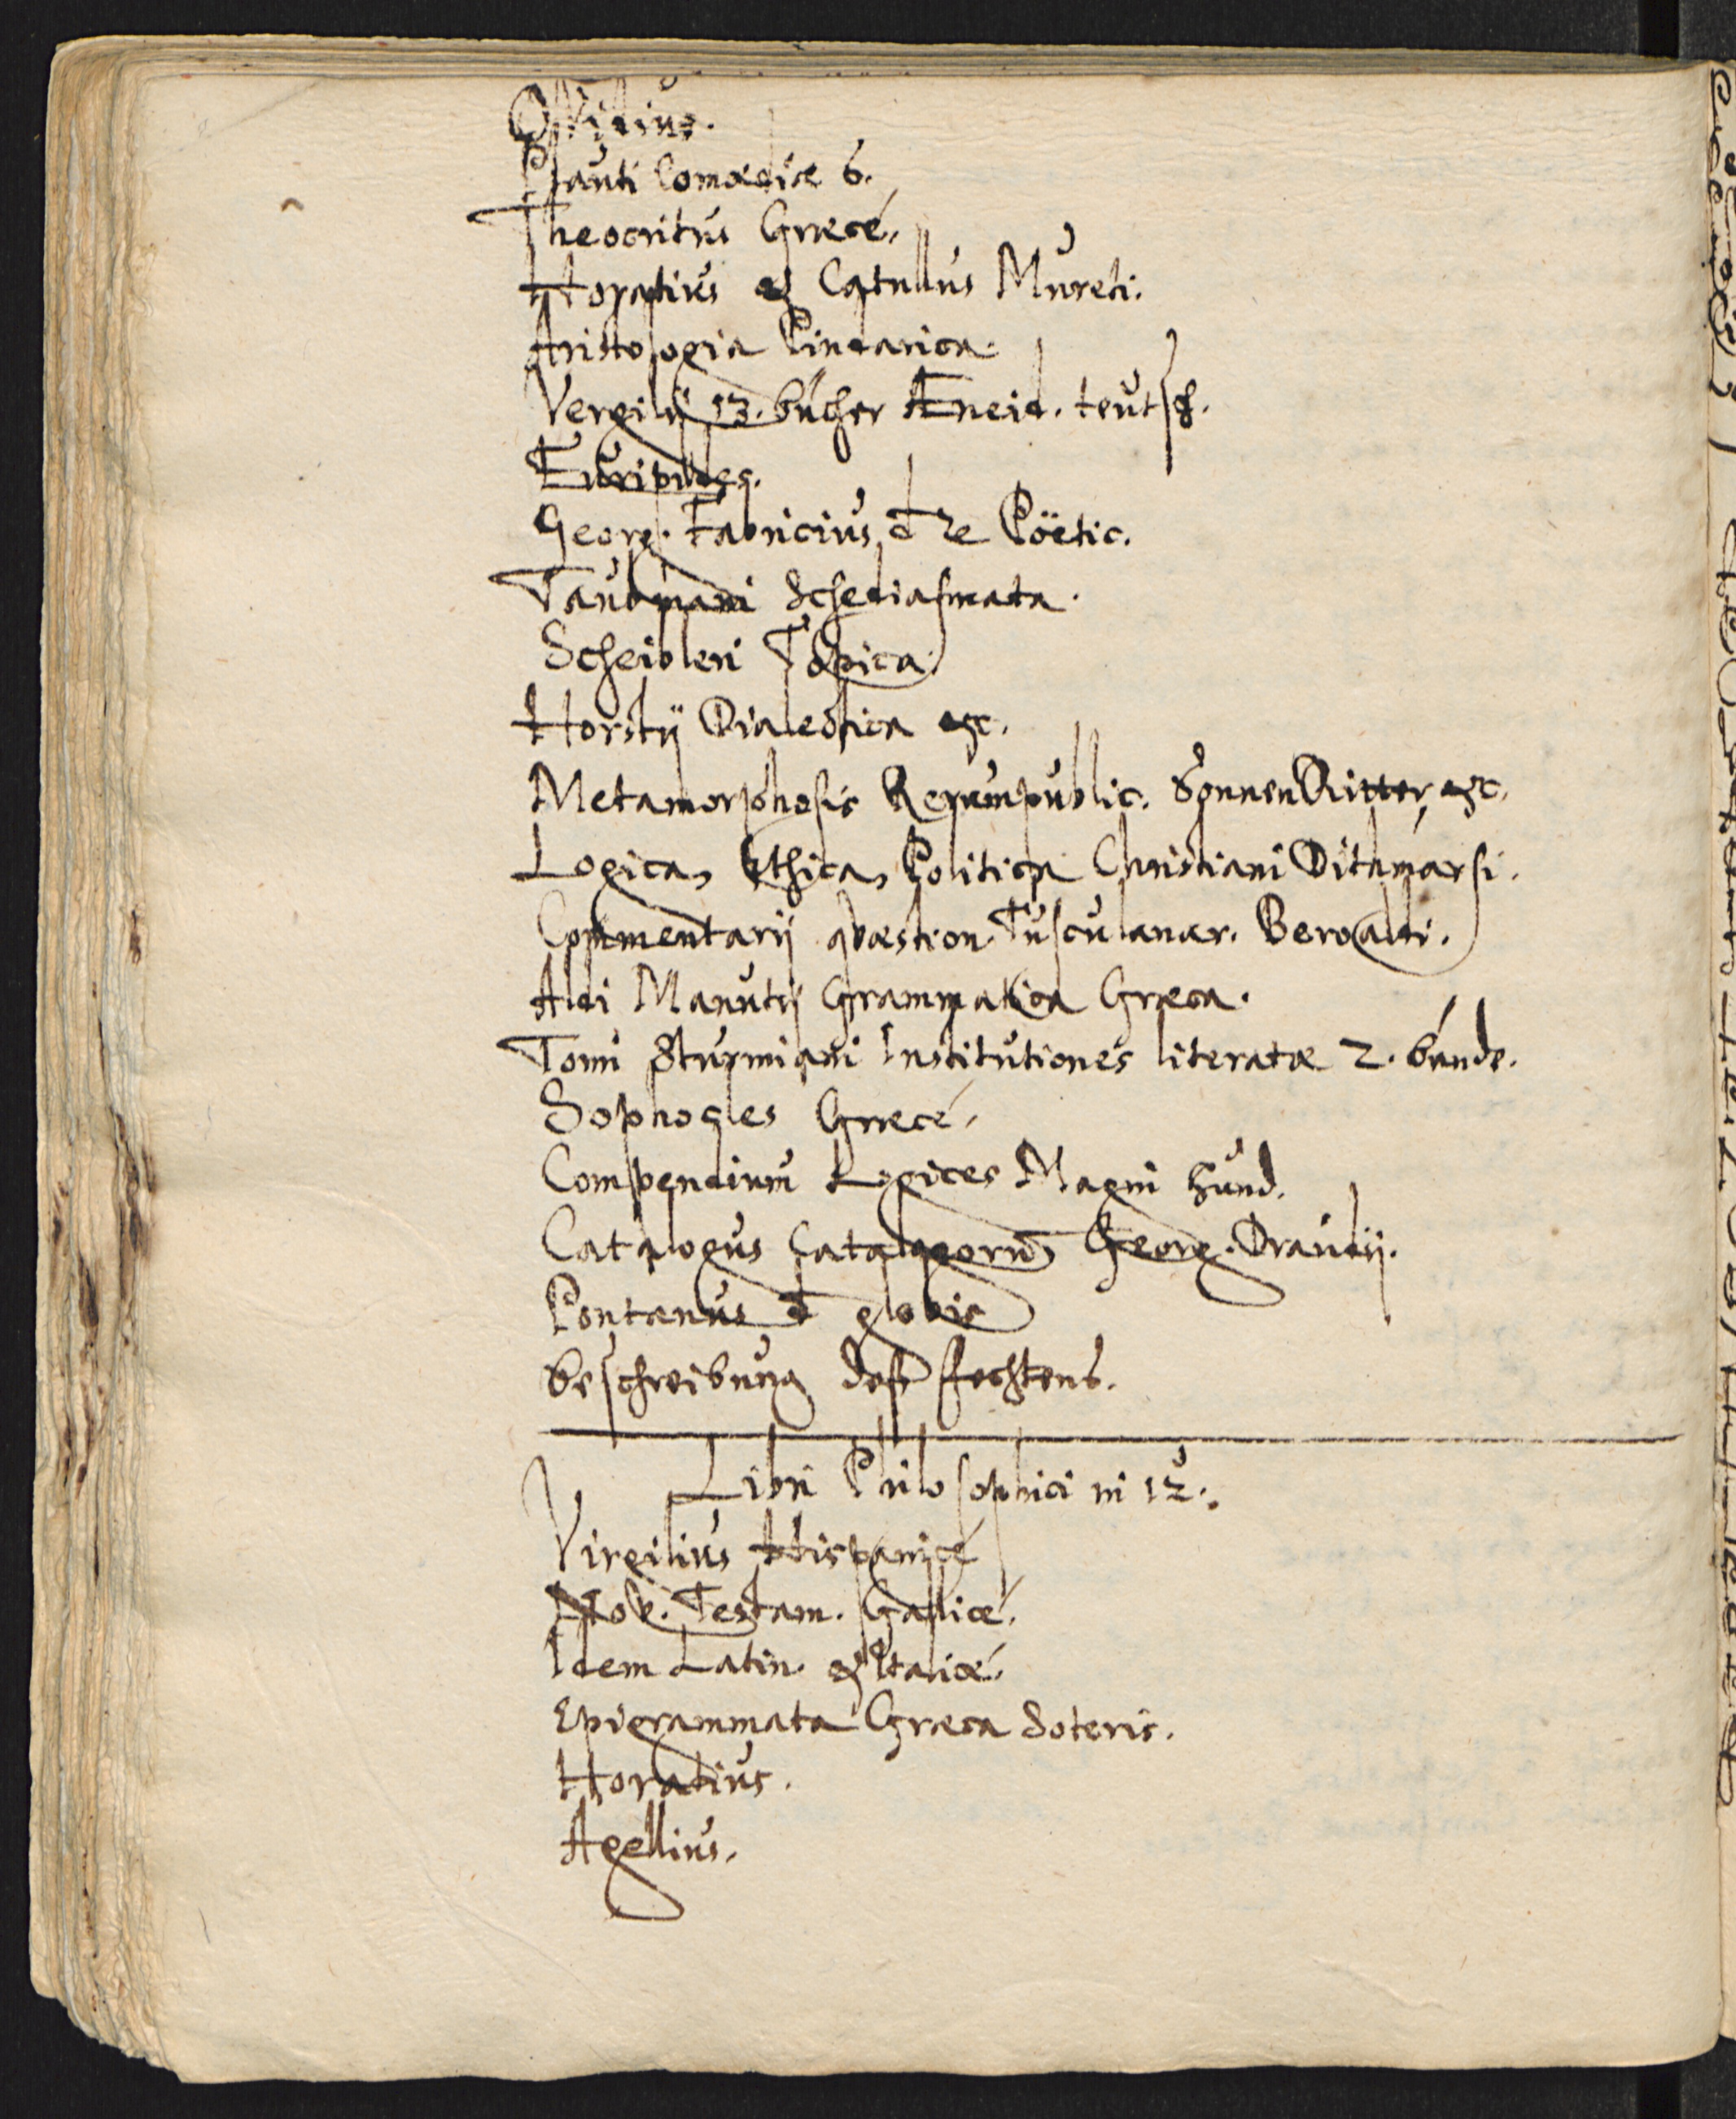 Ovidius.
Plauti Comœdiæ 6.
Theocritus Græcé.
Horatius et Catullus Mureti.
Aristologia Pindarica.
Vergilij 13. bücher Æneid. teutsch.
Euripides.
Georg. Fabricius de re Pöetic.
Taubmani Schediasmata.
Scheibleri Topica.
Horstij Dialectica etc.
Metamorphosis Rerumpublic. SonnenRitter, etc.
Logica, Ethica, Politica Christiani Ditmarsi.
Commentarij qvæstion. Tusculanar. Beroaldi.
Aldi Manutij Grammatica Græca.
Tomi Sturmiani Institutiones literatæ 2. bände.
Sophocles Græcé.
Compendium Logices Magni Hund.
Catalogus Catalogorum Georg. Draudij.
Pontanus d globis
Beschreibung deß Fechtens.
Libri Philosophici in 12.
Virgilius Hispanicé
Nov. Testam. Gallicé.
Idem Latin. et Italicé.
Epigrammata Græca Soteris.
Horatius.
Agellius.